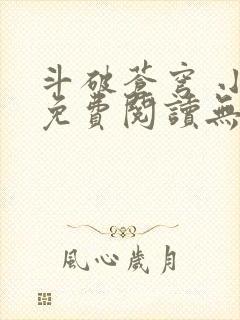 斗破蒼穹 小
免費閱讀無
風心歲月